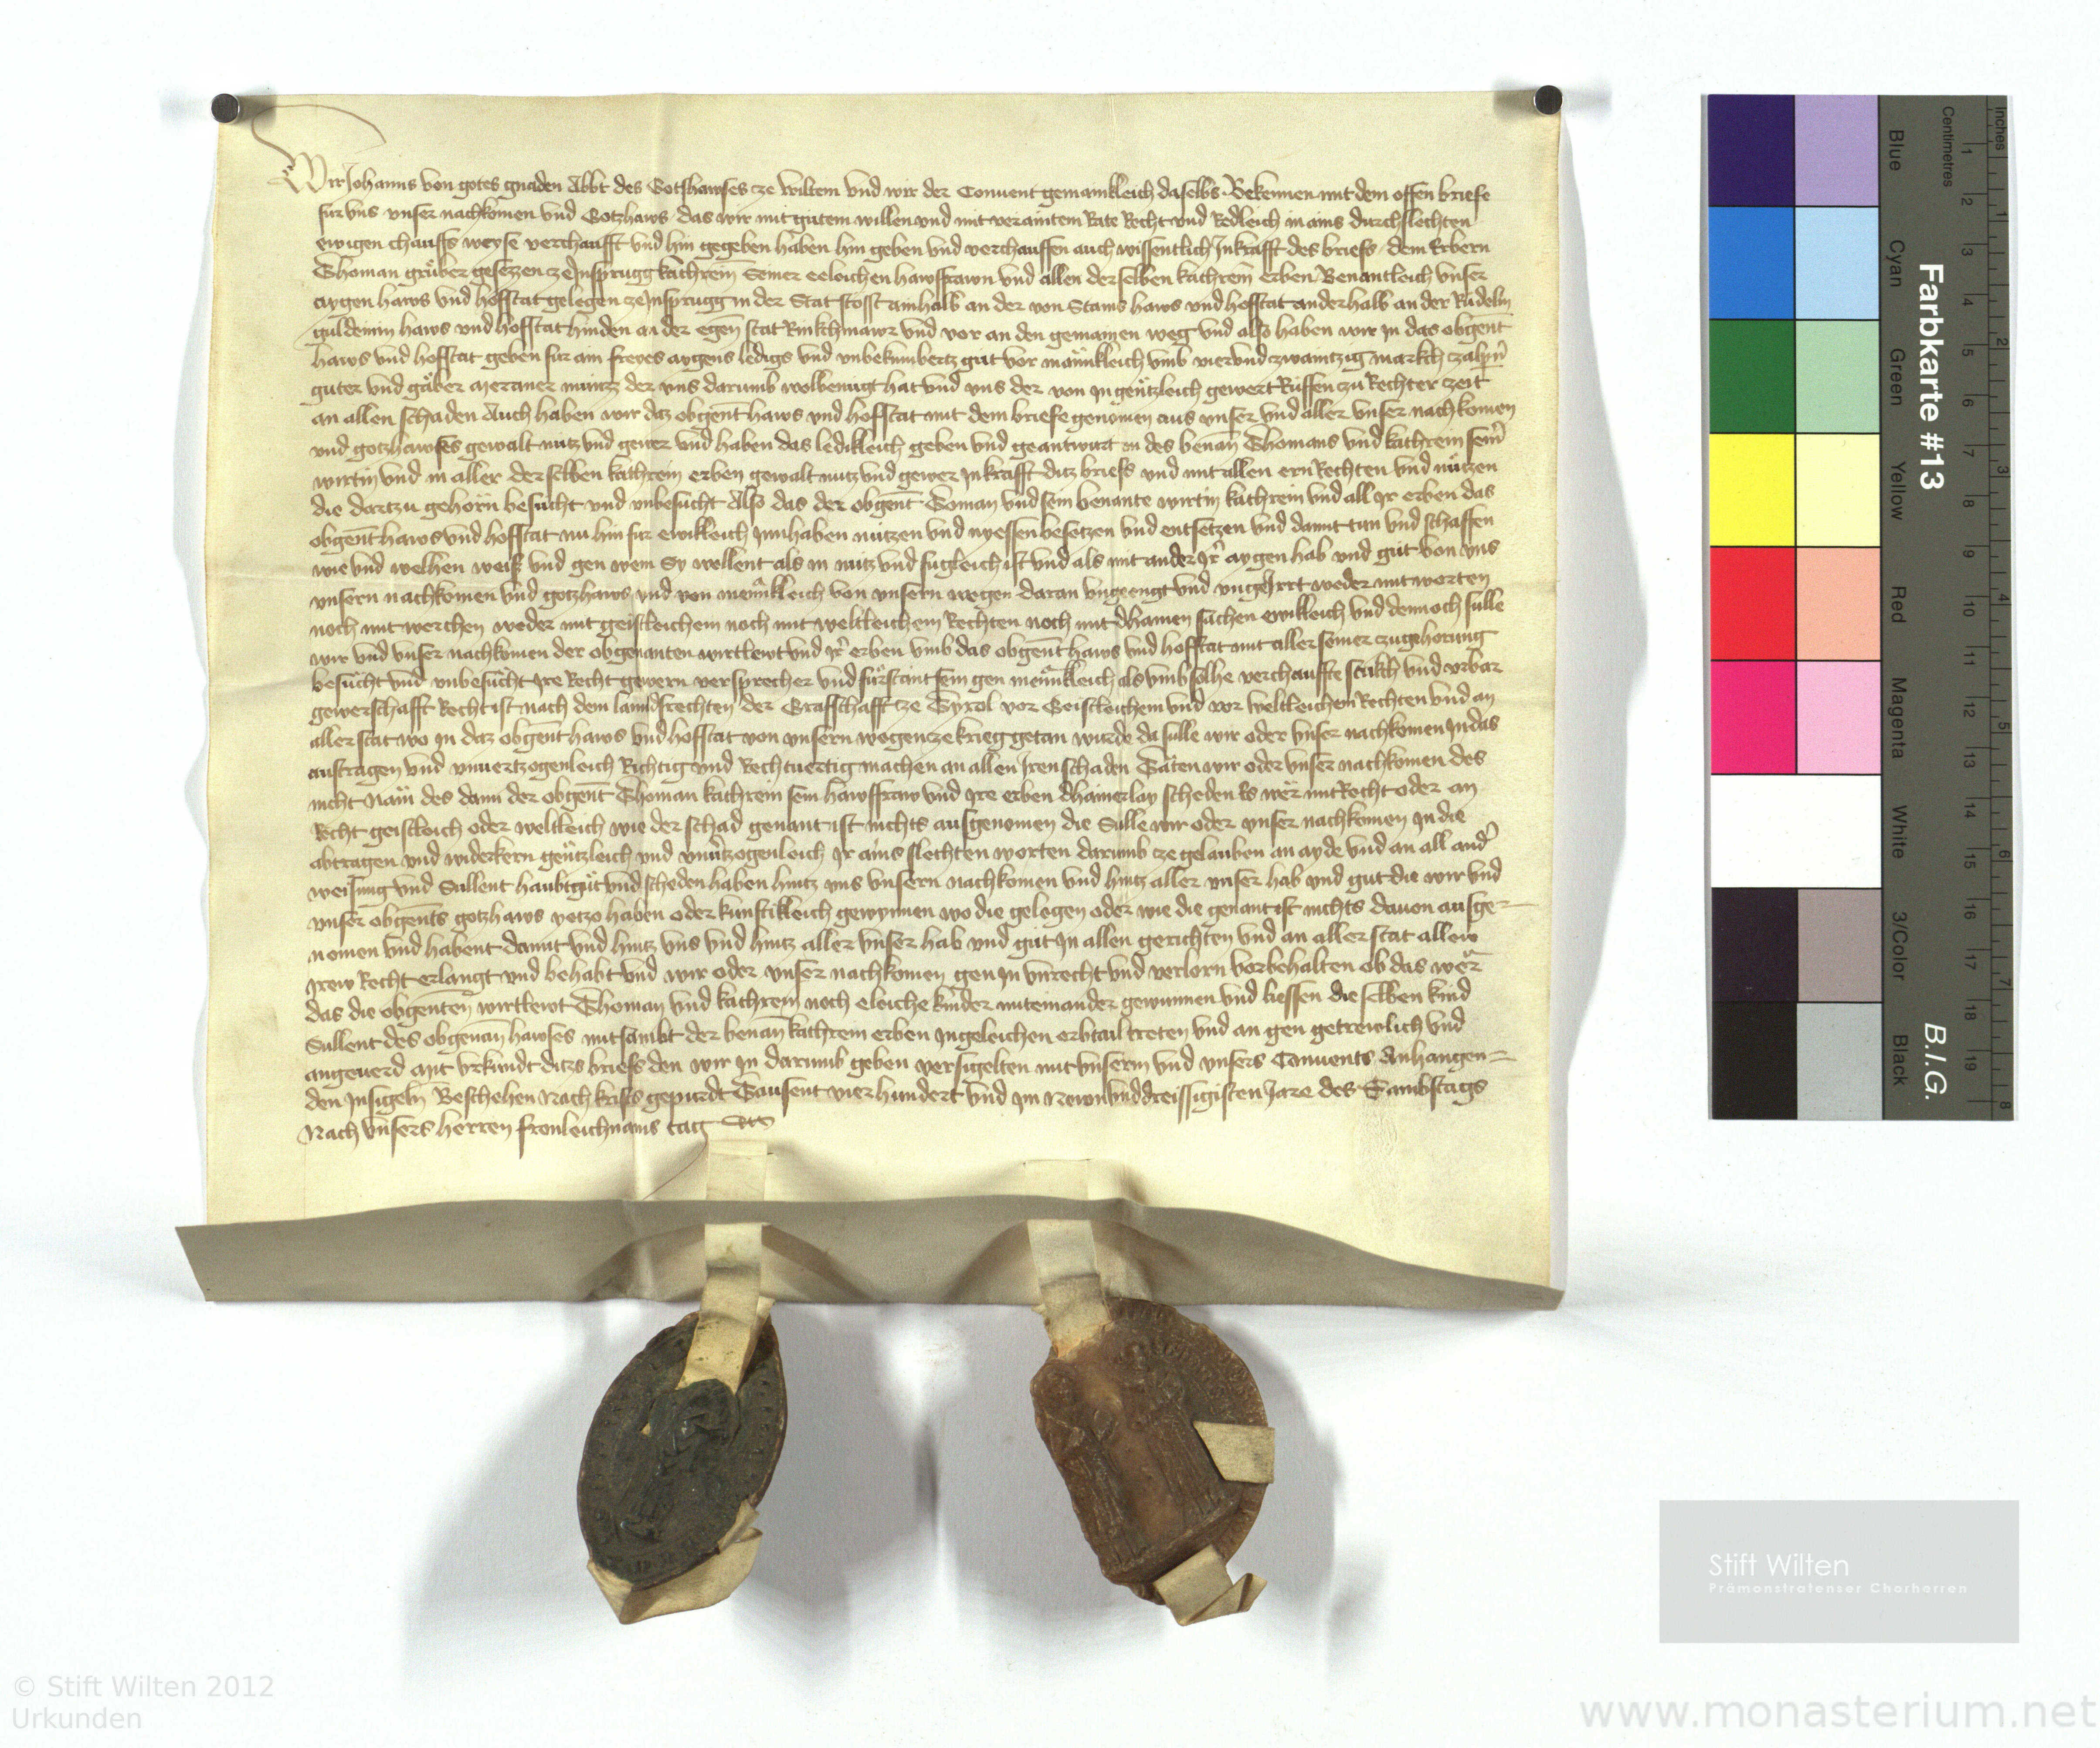 Wir Johanns von gotes gnaden Abbt des Gotshawses ze Wiltein vnd wir der Conuent gemainkleich daselbs Bekennen mit dem offen briefe
fur vns vnser nachkomen vnd Gotzhaws das wir mit gutem willen vnd mit veraintem Rate Recht vnd Redleich in ains durchslechten
ewigen chauffs weyse verchaufft vnd hin gegeben haben hin geben vnd verchauffen auch wissentlich In krafft des briefs dem Erbern
Thoman gräber gesezzen ze Insprugg kathrein Seiner eeleichen hawsfrawn vnd allen derselben kathrein erben Benantleich vnser
aygen haws vnd hofstat gelegen ze Insprugg in der Stat stosst ainhalb an der von Stams haws vnd hofstat anderhalb an der Rudolin
guldeinin haws vnd hofstat hinden an der egen stat Rinkchmawr vnd vor an den gemainen weg vnd also haben wir In das obgent
haws vnd hofstat geben fur ain freyes aygens ledigs vnd vnbekumbertz gut vor mänikleich vmb vierundzwaintzig markch
guter vnd gäber meraner müntz der vns darumb wolbenugt hat vnd vns der von In gentzleich gewert Rüffen zu Rechter zeit
an allen schaden Auch haben wir daz obgent haws vnd hofstat mit dem briefe genomen aus vnser vnd aller vnser nachkomen
vnd gotzhawses gewalt nutz vnd gewer vnd haben das ledikleich geben vnd geantwurt in des benan Thomans vnd kathrein seinr
wirtin vnd in aller derselben kathrein erben gewalt nutz vnd gewer In krafft ditz briefs vnd mit allen ern Rechten vnd nützen
die dartzu gehörn besücht vnd vnbesücht Also das der obgent Toman vnd sein benante wirtin kathrein vnd all Ir erben das
obgent haws vnd hofstat nu hin fur ewikleich Innhaben nützen vnd nyessen besetzen vnd entsetzen vnd damit tun vnd schaffen
wie vnd welhen weis vnd gen wem Sy wellent als in nütz vnd fugleich ist vnd als mit ander Ir aygen hab vnd güt von vns
vnsern nachkomen vnd gotzhaws vnd von menikleich von vnsern wegen daran vngeengt vnd vngeIrrt weder mit worten
noch mit werchen weder mit geistleichem noch mit weltleichem Rechten noch mit dhainen sachen ewikleich vnd dennoch sulle
wir vnd vnser nachkomen der obgenanten wirtlewt vnd Ir erben vmb das obgent haws vnd hofstat mit aller seiner czugehorung
besücht vnd vnbesücht Ire Recht gewern versprecher vnd fürstant sein gen menikleich als vmb solhe verchauffte stukch vnd vrbar
gewerschafft Recht ist nach dem lanndsrechten der Grafschafft ze Tyrol vor Geistleichem vnd vor weltleichem Rechten vnd an
aller stat wo In daz obgent haws vnd hofstat von vnsern wegen ze krieg getan wurde da sulle wir oder vnser nachkomen In das
austragen vnd vnuertzogenleich Richtig vnd Rechtuertig machen an allen Iren schaden Täten wir oder vnser nachkomen des
nicht Näm des dann der obgent Thoman kathrein sein hawsfraw vnd Ire erben dhainerlay scheden Es wër mit Recht oder an
Recht geistleich oder weltleich wie der schad genant ist nichts ausgenomen die Sulle wir oder vnser nachkomen In die
abtragen vnd widerkern gentzleich vnd vnuerzogenleich Ir ains slechten worten darumb ze gelauben an ayde vnd an all ander
weisung vnd Sullent haubtgüt vnd scheden haben hintz vns vnsern nachkomen vnd hintz aller vnser hab vnd gut die wir vnd
vnser obgents gotzhaws yetzo haben oder kunftikleich gewynnen wo die gelegen oder wie die genant ist nichts dauon ausge-
nomen vnd habent damit vnd hintz vns vnd hintz aller vnser hab vnd güt In allen gerichten vnd an aller stat allew
Irew Recht erlangt vnd behabt vnd wir oder vnser nachkomen gen In vnrecht vnd verlorn vorbehalten ob das wër
das die obgenten wirtlewt Thoman vnd kathrein noch eleiche kinder miteinander gewunnen vnd liessen dieselben kind
Sullent des obgenan hawses mitsambt der benan kathrein erben Ingeleichen erbtail treten vnd an gen getrewlich vnd
angeuerd Mit vrkundt ditzs briefs den wir In darumb geben versigelten mit vnserm vnd vnsers Conuents Anhangen=
den Insigeln Beschehen Nach krists gepurdt Tausent vierhundert vnd Im Newnvnddreissigisten Jare des Sambstags
Nach vnsers herren fronleichnams tag
Farbkarte #13
B.I.G.
Blue Cyan Green Yellow Red Magenta White 3/Color Black
Centimetres
1 2 3 4 5 6 7 8 9 10 11 12 13 14 15 16 17 18 19
Inches
1 2 3 4 5 6 7 8
Stift Wilten
Prämonstratenser Chorherren
© Stift Wilten 2012
Urkunden
www.monasterium.net